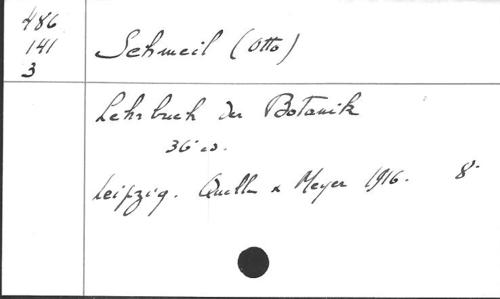 486
141
3
Schmeil (Otto)
Lehrbuch der Botanik
36 ed.
Leipzig. Quelle & Meyer 1916. 8º